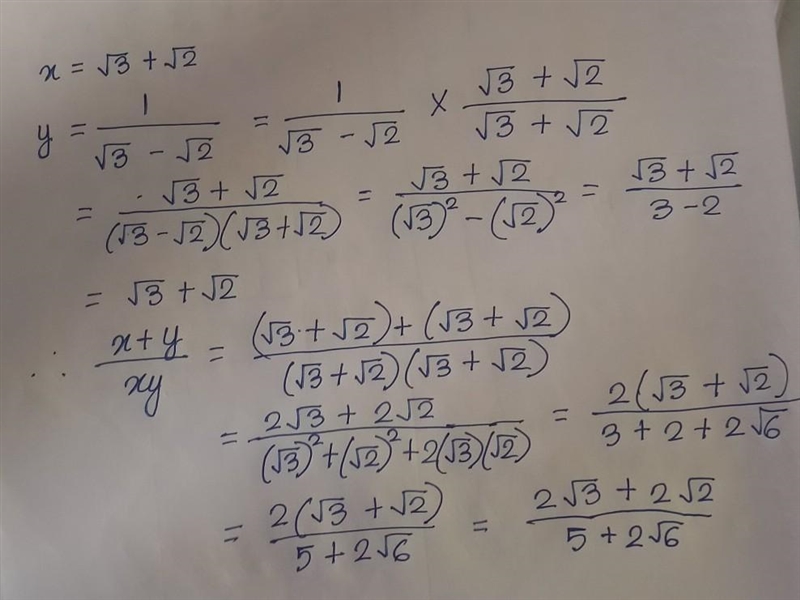 x = √3 + √2
y = 1/(√3 - √2) = 1/(√3 - √2) × (√3 + √2)/(√3 + √2)
= √3 + √2/((√3 - √2)(√3 + √2)) = (√3 + √2)/((√3)² - (√2)²) = (√3 + √2)/(3 - 2)
= √3 + √2
∴ (x + y)/(xy) = ((√3 + √2) + (√3 + √2))/((√3 + √2)(√3 + √2))
= (2√3 + 2√2)/((√3)² + (√2)² + 2(√3)(√2)) = 2(√3 + √2)/(3 + 2 + 2√6)
= 2(√3 + √2)/(5 + 2√6) = (2√3 + 2√2)/(5 + 2√6)